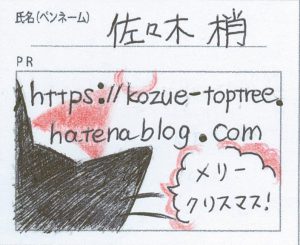 氏名(ペンネーム) 佐々木 梢
PR
https://kozue-toptree.
hatenablog.com
メリー
クリスマス!